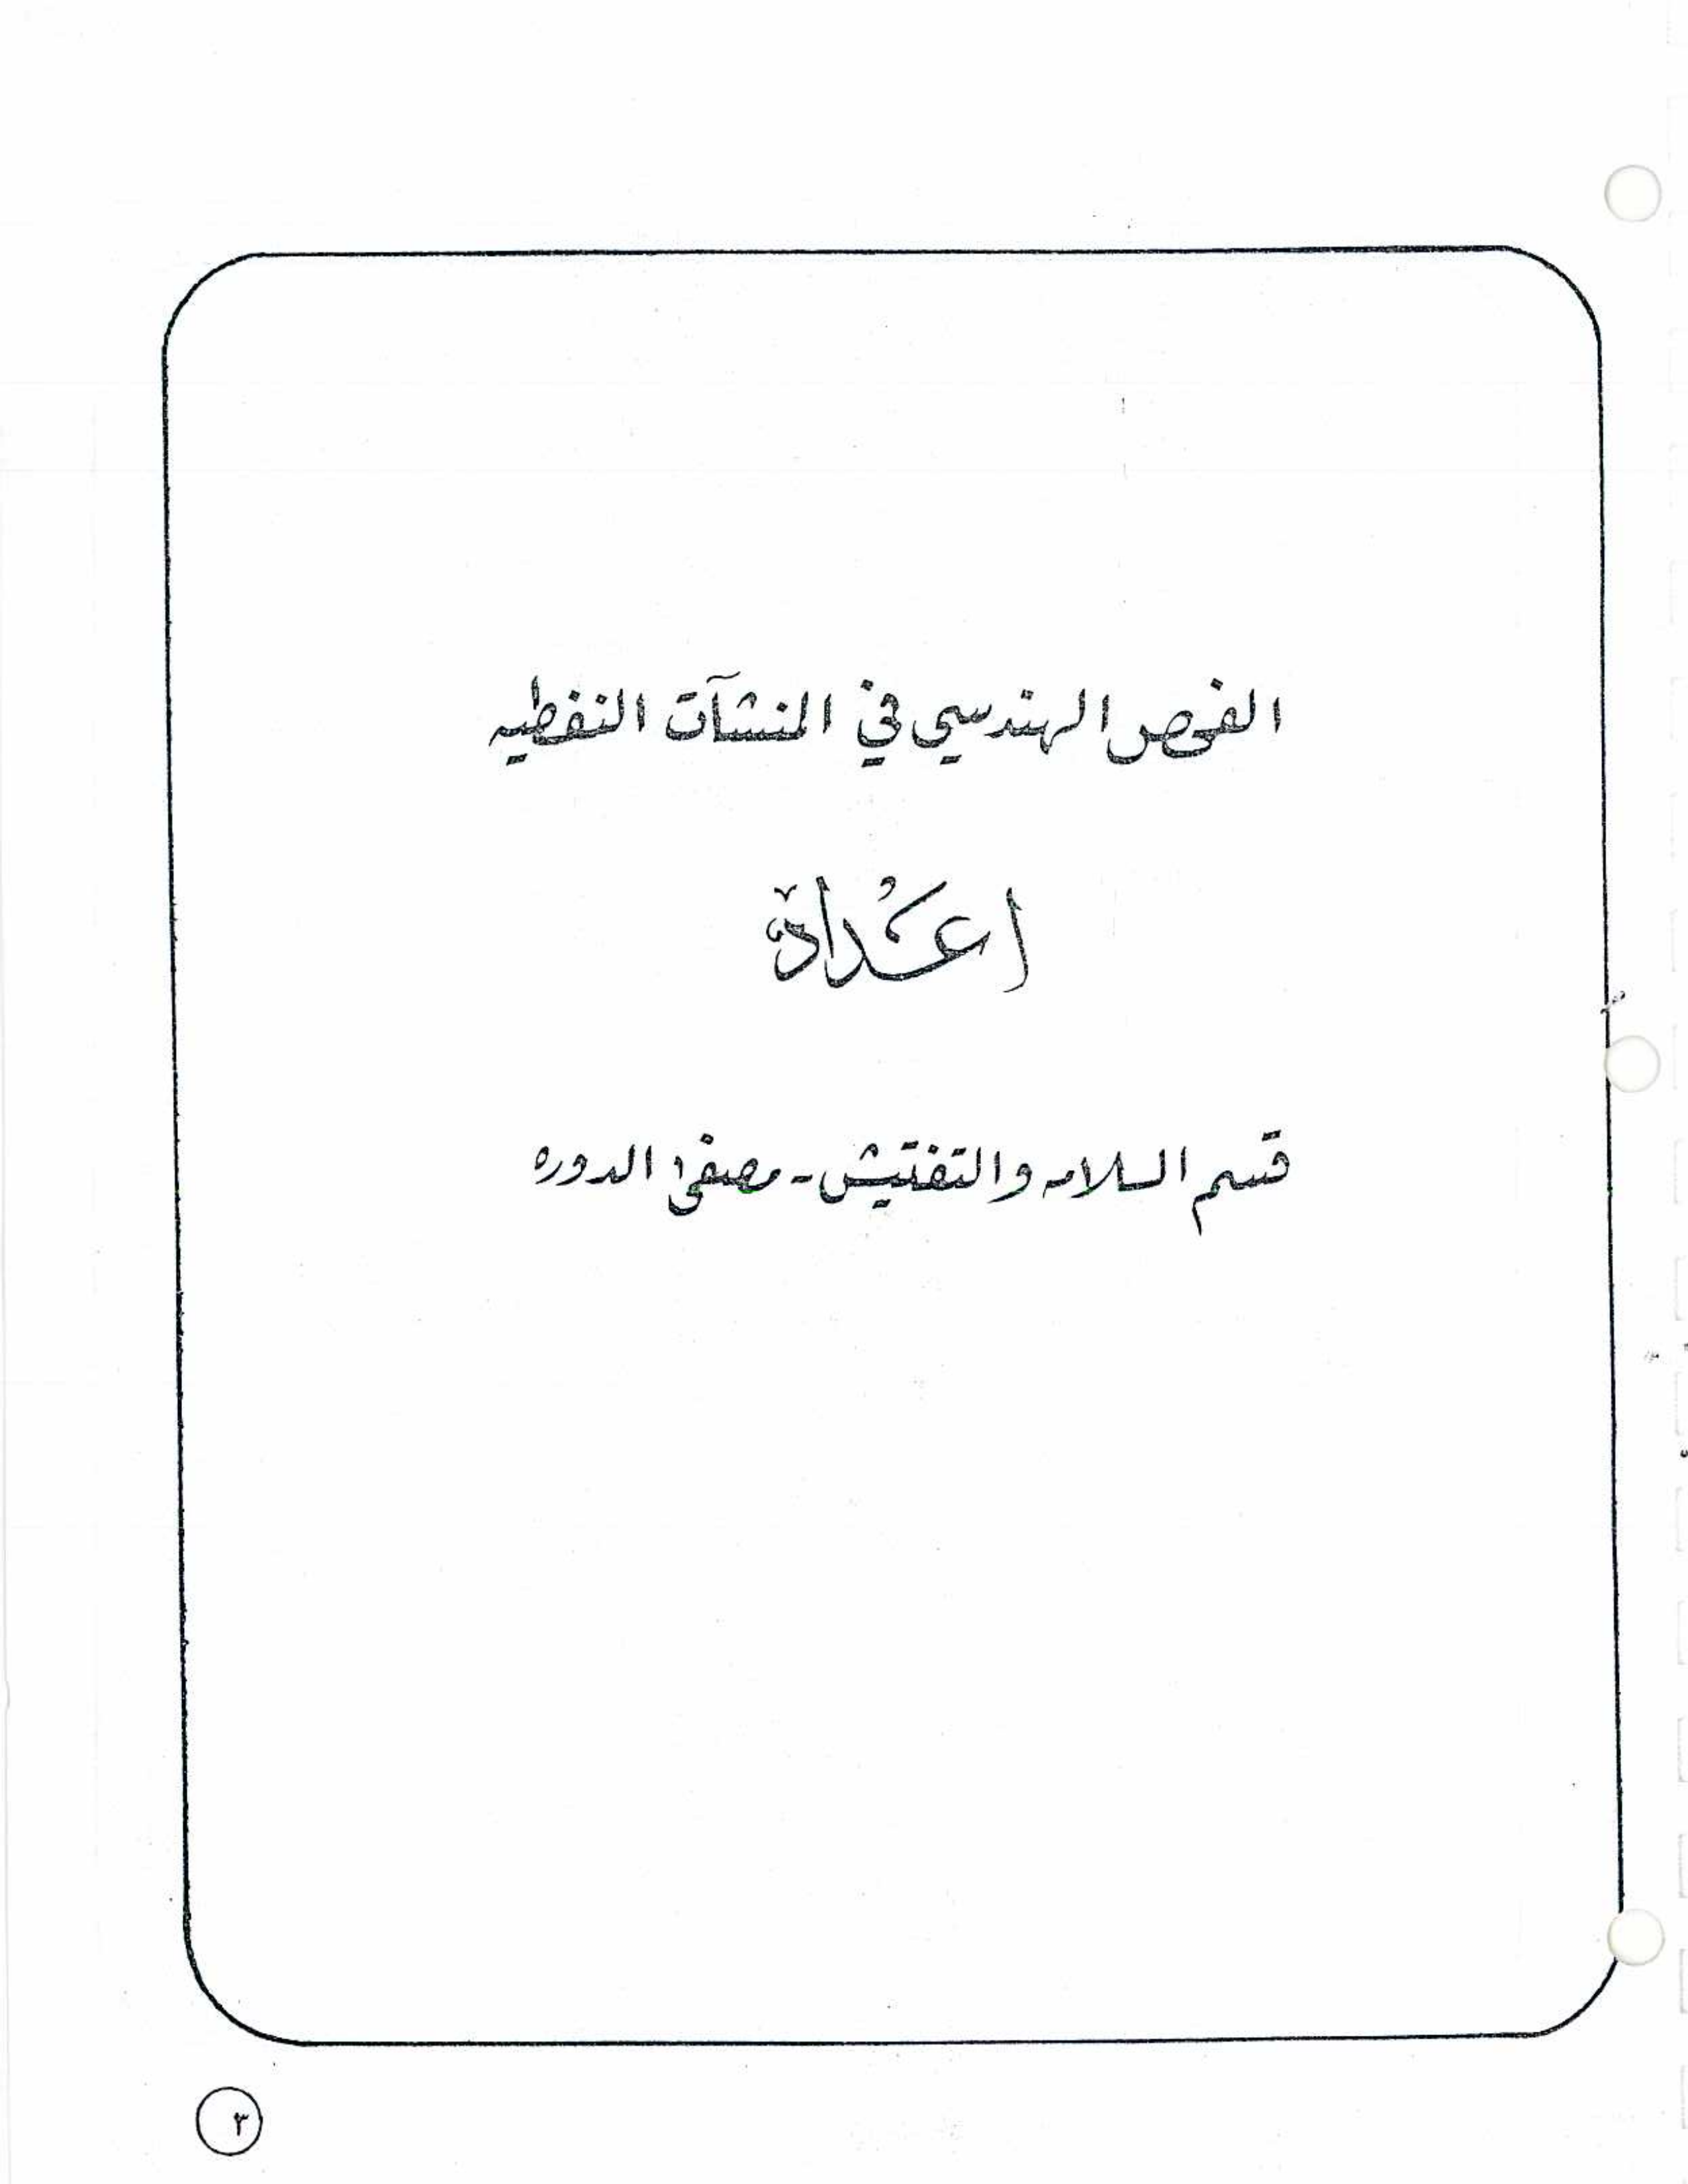 الفحص الهندسي في المنشآت النفطيه
اعداد
قسم السلامه والتفتيش - مصفى الدوره
٣